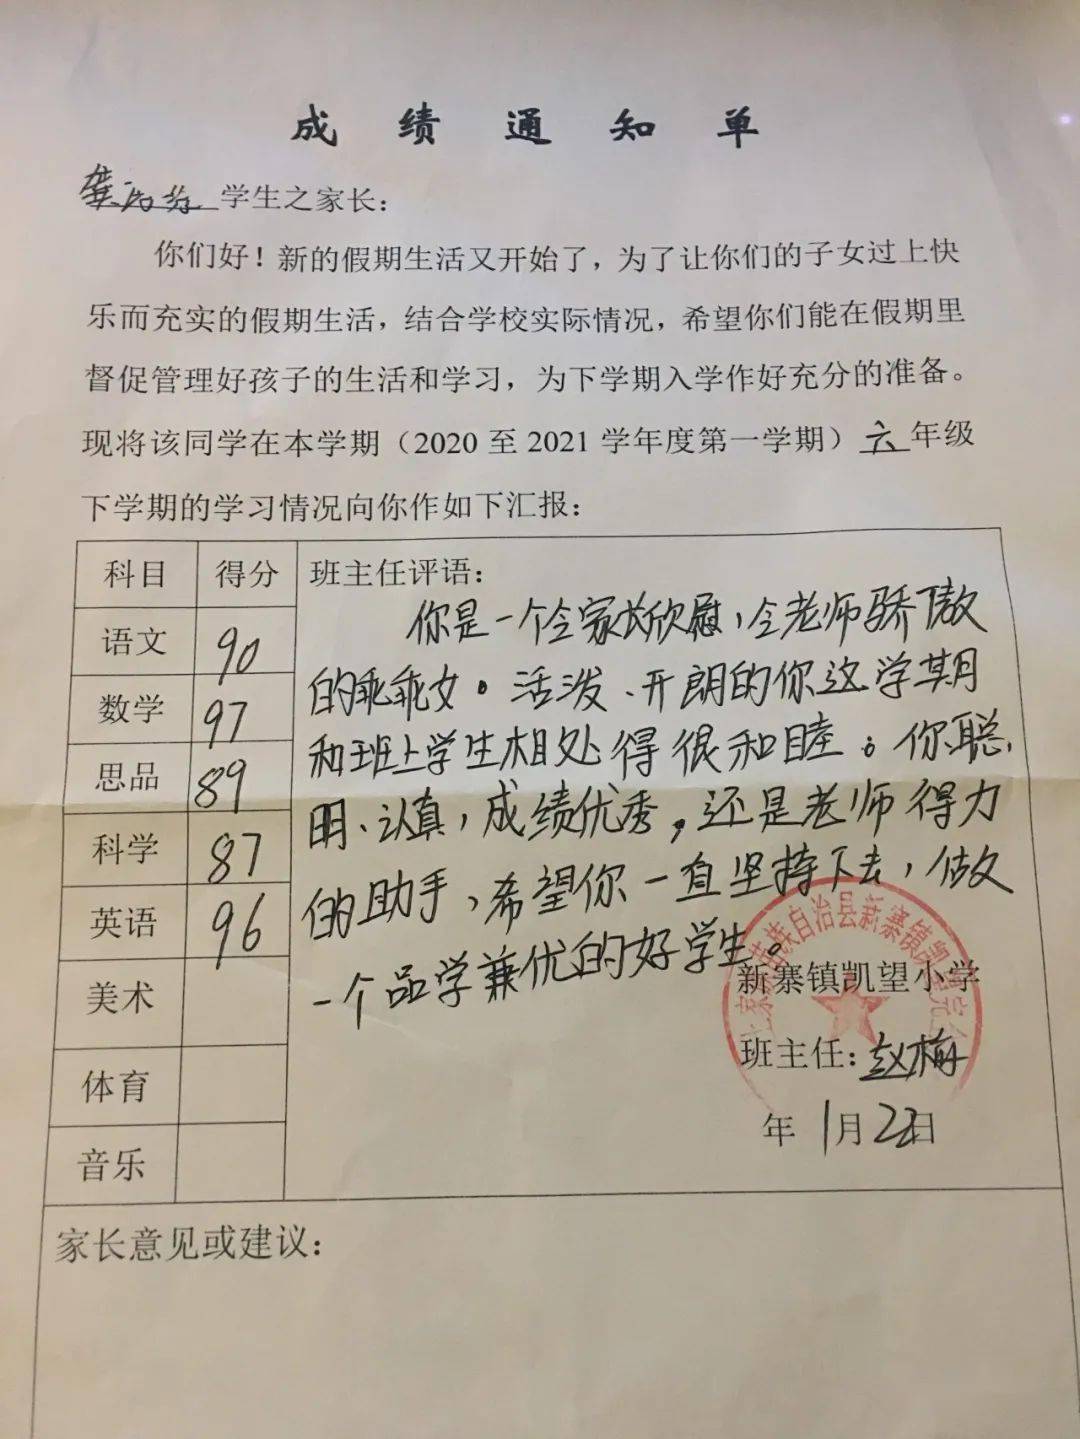 成绩通知单
龚 学生之家长：
你们好！新的假期生活又开始了，为了让你们的子女过上快
乐而充实的假期生活，结合学校实际情况，希望你们能在假期里
督促管理好孩子的生活和学习，为下学期入学作好充分的准备。
现将该同学在本学期（2020 至 2021 学年度第一学期）六 年级
下学期的学习情况向你作如下汇报：
科目 得分 班主任评语：
你是一个令家长欣慰，令老师骄傲
语文 90
的乖乖女。活泼、开朗的你这学期
数学 97
和班上学生相处得很和睦。你聪
思品 89
明、认真，成绩优秀，还是老师得力
科学 87
的助手，希望你一直坚持下去，做
英语 96
一个品学兼优的好学生。
苗族自治县新寨镇凯
新寨镇凯望小学
美术
班主任：赵梅
体育
年 1月22日
音乐
家长意见或建议：